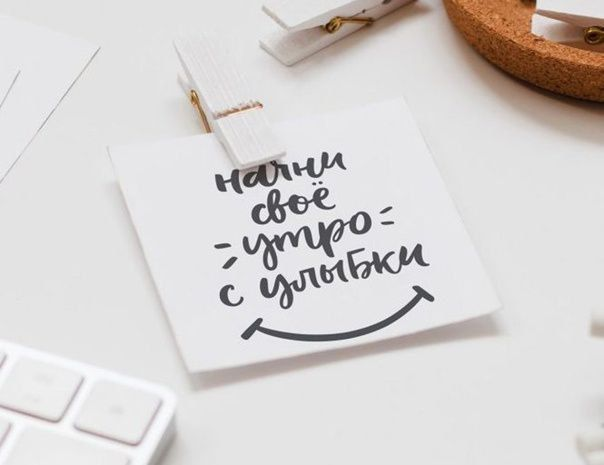 начни
своё
утро
с улыбки